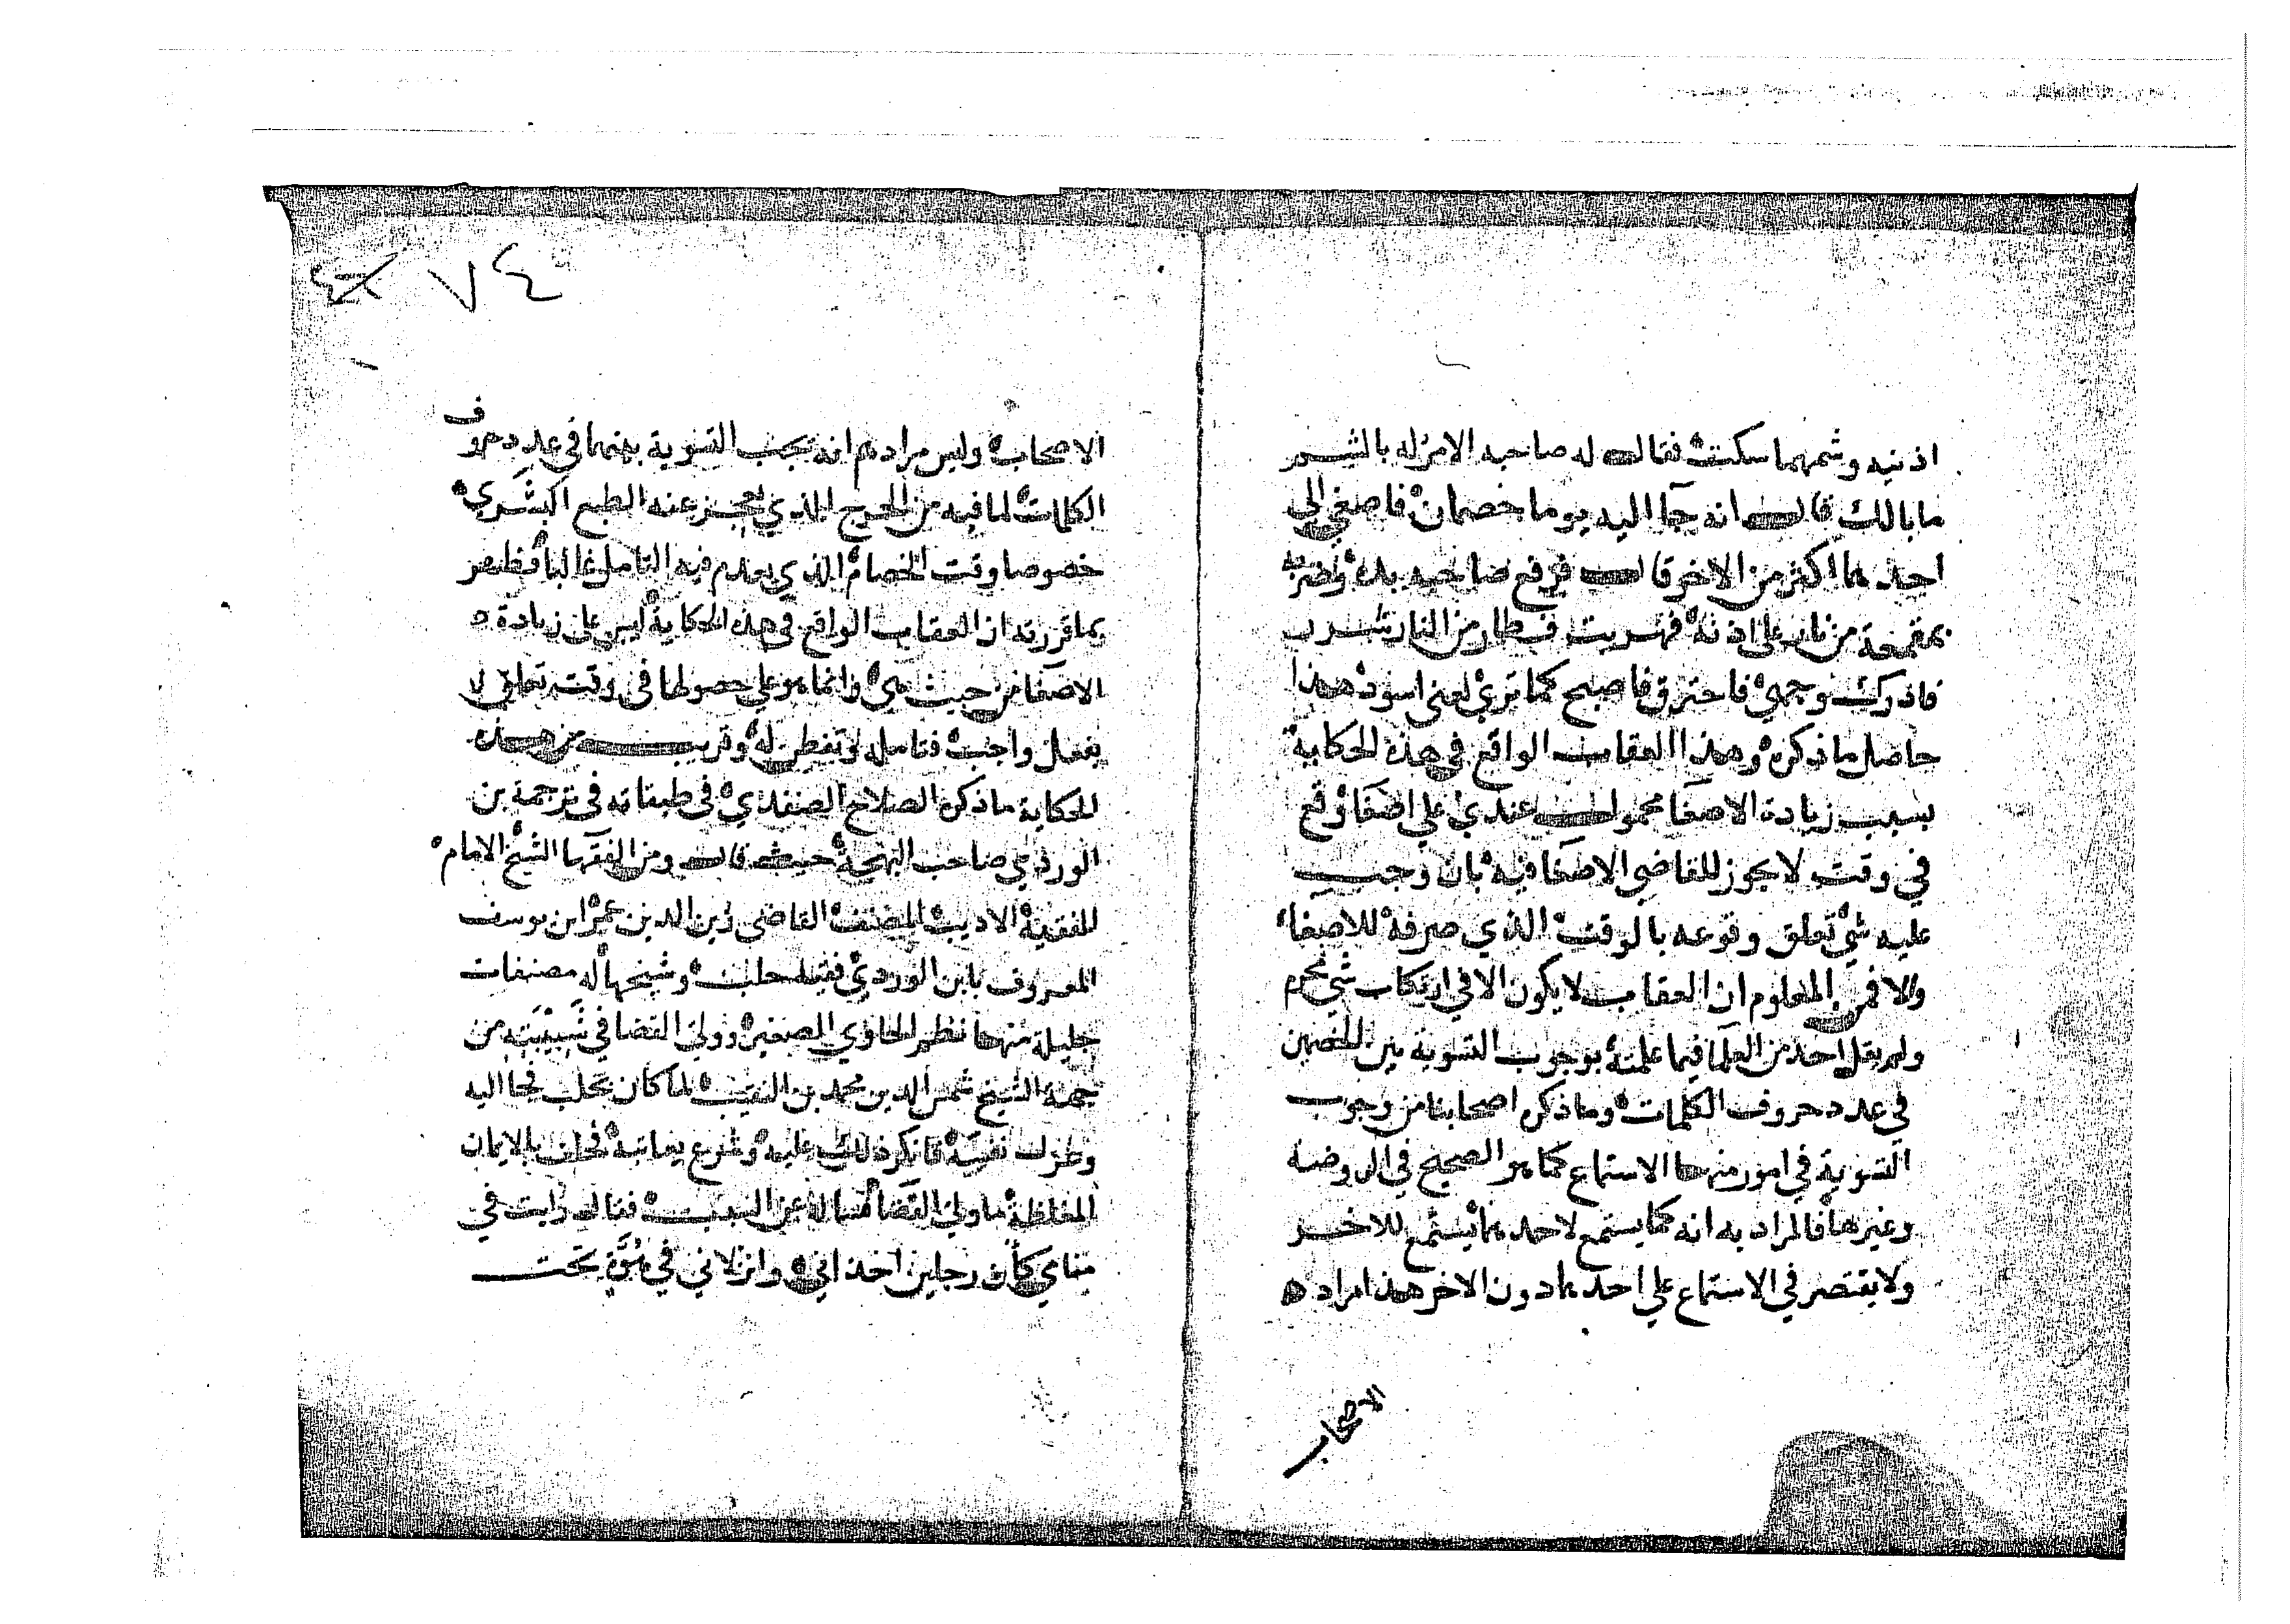 اذنيه وشمهما سكت فقال له صاحبه الامر له بالشم
ما بالك قال انه جآ اليه يوما خصمان فاصغي الي
احدهما اكثر من الاخر قال فرفع صاحبه يده وضربه
بمقمعة من نار علي اذنه فهربت فطار من النار شرر
فادركت وجهي فاحترق فاصبح كما تري يعني اسود هذا
حاصل ما ذكره وهذا العقاب الواقع في هذه الحكاية
بسبب زيادة الاصغا محمول عندي علي اصغا وقع
في وقت لا يجوز للقاضي الاصغا فيه بان وجب
عليه شي تعلق وقوعه بالوقت الذي صرفه للاصغاء
والا فمن المعلوم ان العقاب لا يكون الا في ارتكاب شي محرم
ولم يقل احد من العلما فيما علمته بوجوب التسوية بين الخصمين
في عدد حروف الكلمات وما ذكره اصحابنا من وجوب
التسوية في امور منها الاستماع كما هو الصحيح في الروضة
وغيرها فالمراد به انه كما يستمع لاحدهما يستمع للاخر
ولا يقتصر في الاستماع علي احدهما دون الاخر هذا مراد
الاصحاب
٧٤
الاصحاب وليس مرادهم انه تجب التسوية بينهما في عدد حروف
الكلمات لما فيه من الحرج الذي يعجز عنه الطبع البشري
خصوصا وقت الخصام الذي يعدم فيه التامل غالبا فظهر
بما قررته ان العقاب الواقع في هذه الحكاية ليس علي زيادة
الاصغا من حيث هي وانما هو علي حصولها في وقت تعلق
بفعل واجب فتامله وتفطن له وقريب من هذه
الحكاية ما ذكره الصلاح الصفدي في طبقاته في ترجمة بن
الوردي صاحب البهجة حيث قال ومن الفقها الشيخ الامام
الفقيه الاديب المصنف القاضي زين الدين عمر ابن يوسف
المعروف بابن الوردي فقيه حلب وشيخها له مصنفات
جليلة منها نظم الحاوي الصغير وولي القضا في شبيبته من
جهة الشيخ شمس الدين محمد بن النقيب لما كان بحلب فجا اليه
وعزل نفسه فانكر ذلك عليه وشرع يعاتبه فحلف بالايمان
المغلظة ما ولي القضا فساله عن السبب فقال رايت في
منامي كأن رجلين اخذاني وانزلاني في هُوَّةٍ تحت